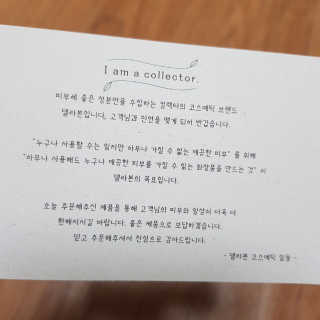 I am a collector.
피부에 좋은 성분만을 수집하는 컬렉터의 코스메틱 브랜드
델라본입니다. 고객님과 인연을 맺게 되어 반갑습니다.
"누구나 사용할 수는 있지만 아무나 가질 수 없는 매끈한 피부" 를 위해
"아무나 사용해도 누구나 매끈한 피부를 가질 수 있는 화장품을 만드는 것" 이
델라본의 목표입니다.
오늘 주문해주신 제품을 통해 고객님의 피부와 일상이 더욱 더
환해지시길 바랍니다. 좋은 제품으로 보답하겠습니다.
믿고 주문해주셔서 진심으로 감사드립니다.
- 델라본 코스메틱 일동 -